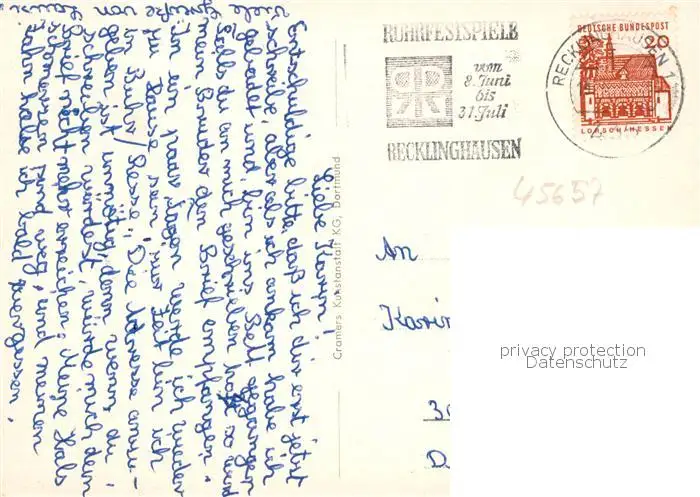 Liebe Karin!
Entschuldige bitte, daß ich dir erst jetzt
schreibe, aber als ich ankam habe ich
gebadet und bin ins Bett gegangen
Falls du an mich geschrieben hast, so wird
mein Bruder den Brief empfangen.
In ein paar Tagen werde ich wieder
zu Hause sein, zur Zeit bin ich
in Buhr/Hesse; Die Adresse anzu-
geben ist unnötig, denn wenn du
schreiben würdest, würde mich dein
Brief nicht mehr erreichen. Meine Hals
schmerzen sind weg, und meinen
Zahn habe ich bald vergessen.
Viele Grüße von
Cramers Kunstanstalt KG, Dortmund
RUHRFESTSPIELE
vom
8. Juni
bis
31. Juli
RECKLINGHAUSEN
RECKLINGHAUSEN 1
DEUTSCHE BUNDESPOST
20
LORSCH/HESSEN
45657
An
Karin
privacy protection
Datenschutz